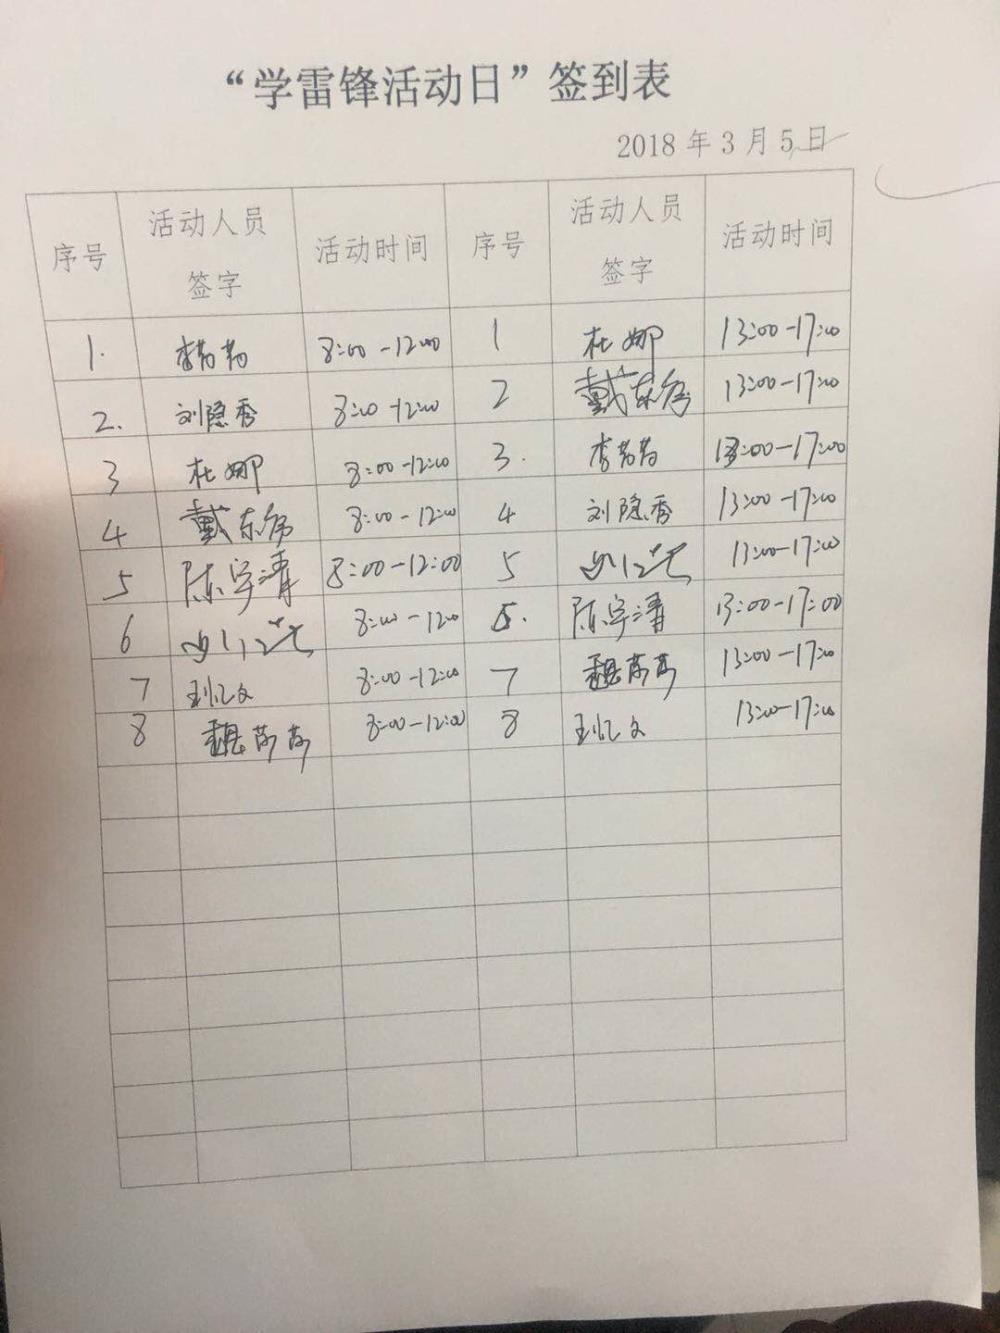 “学雷锋活动日”签到表
2018 年 3 月 5 日
序号 活动人员签字 活动时间 序号 活动人员签字 活动时间
1. 李芳芳 8:00-12:00 1 杜娜 13:00-17:00
2. 刘隐秀 8:00-12:00 2 戴东 13:00-17:00
3 杜娜 8:00-12:00 3. 李芳芳 13:00-17:00
4 戴东 8:00-12:00 4 刘隐秀 13:00-17:00
5 陈宇清 8:00-12:00 5 13:00-17:00
6 8:00-12:00 6. 陈宇清 13:00-17:00
7 8:00-12:00 7 魏芳芳 13:00-17:00
8 魏芳芳 8:00-12:00 8 13:00-17:00